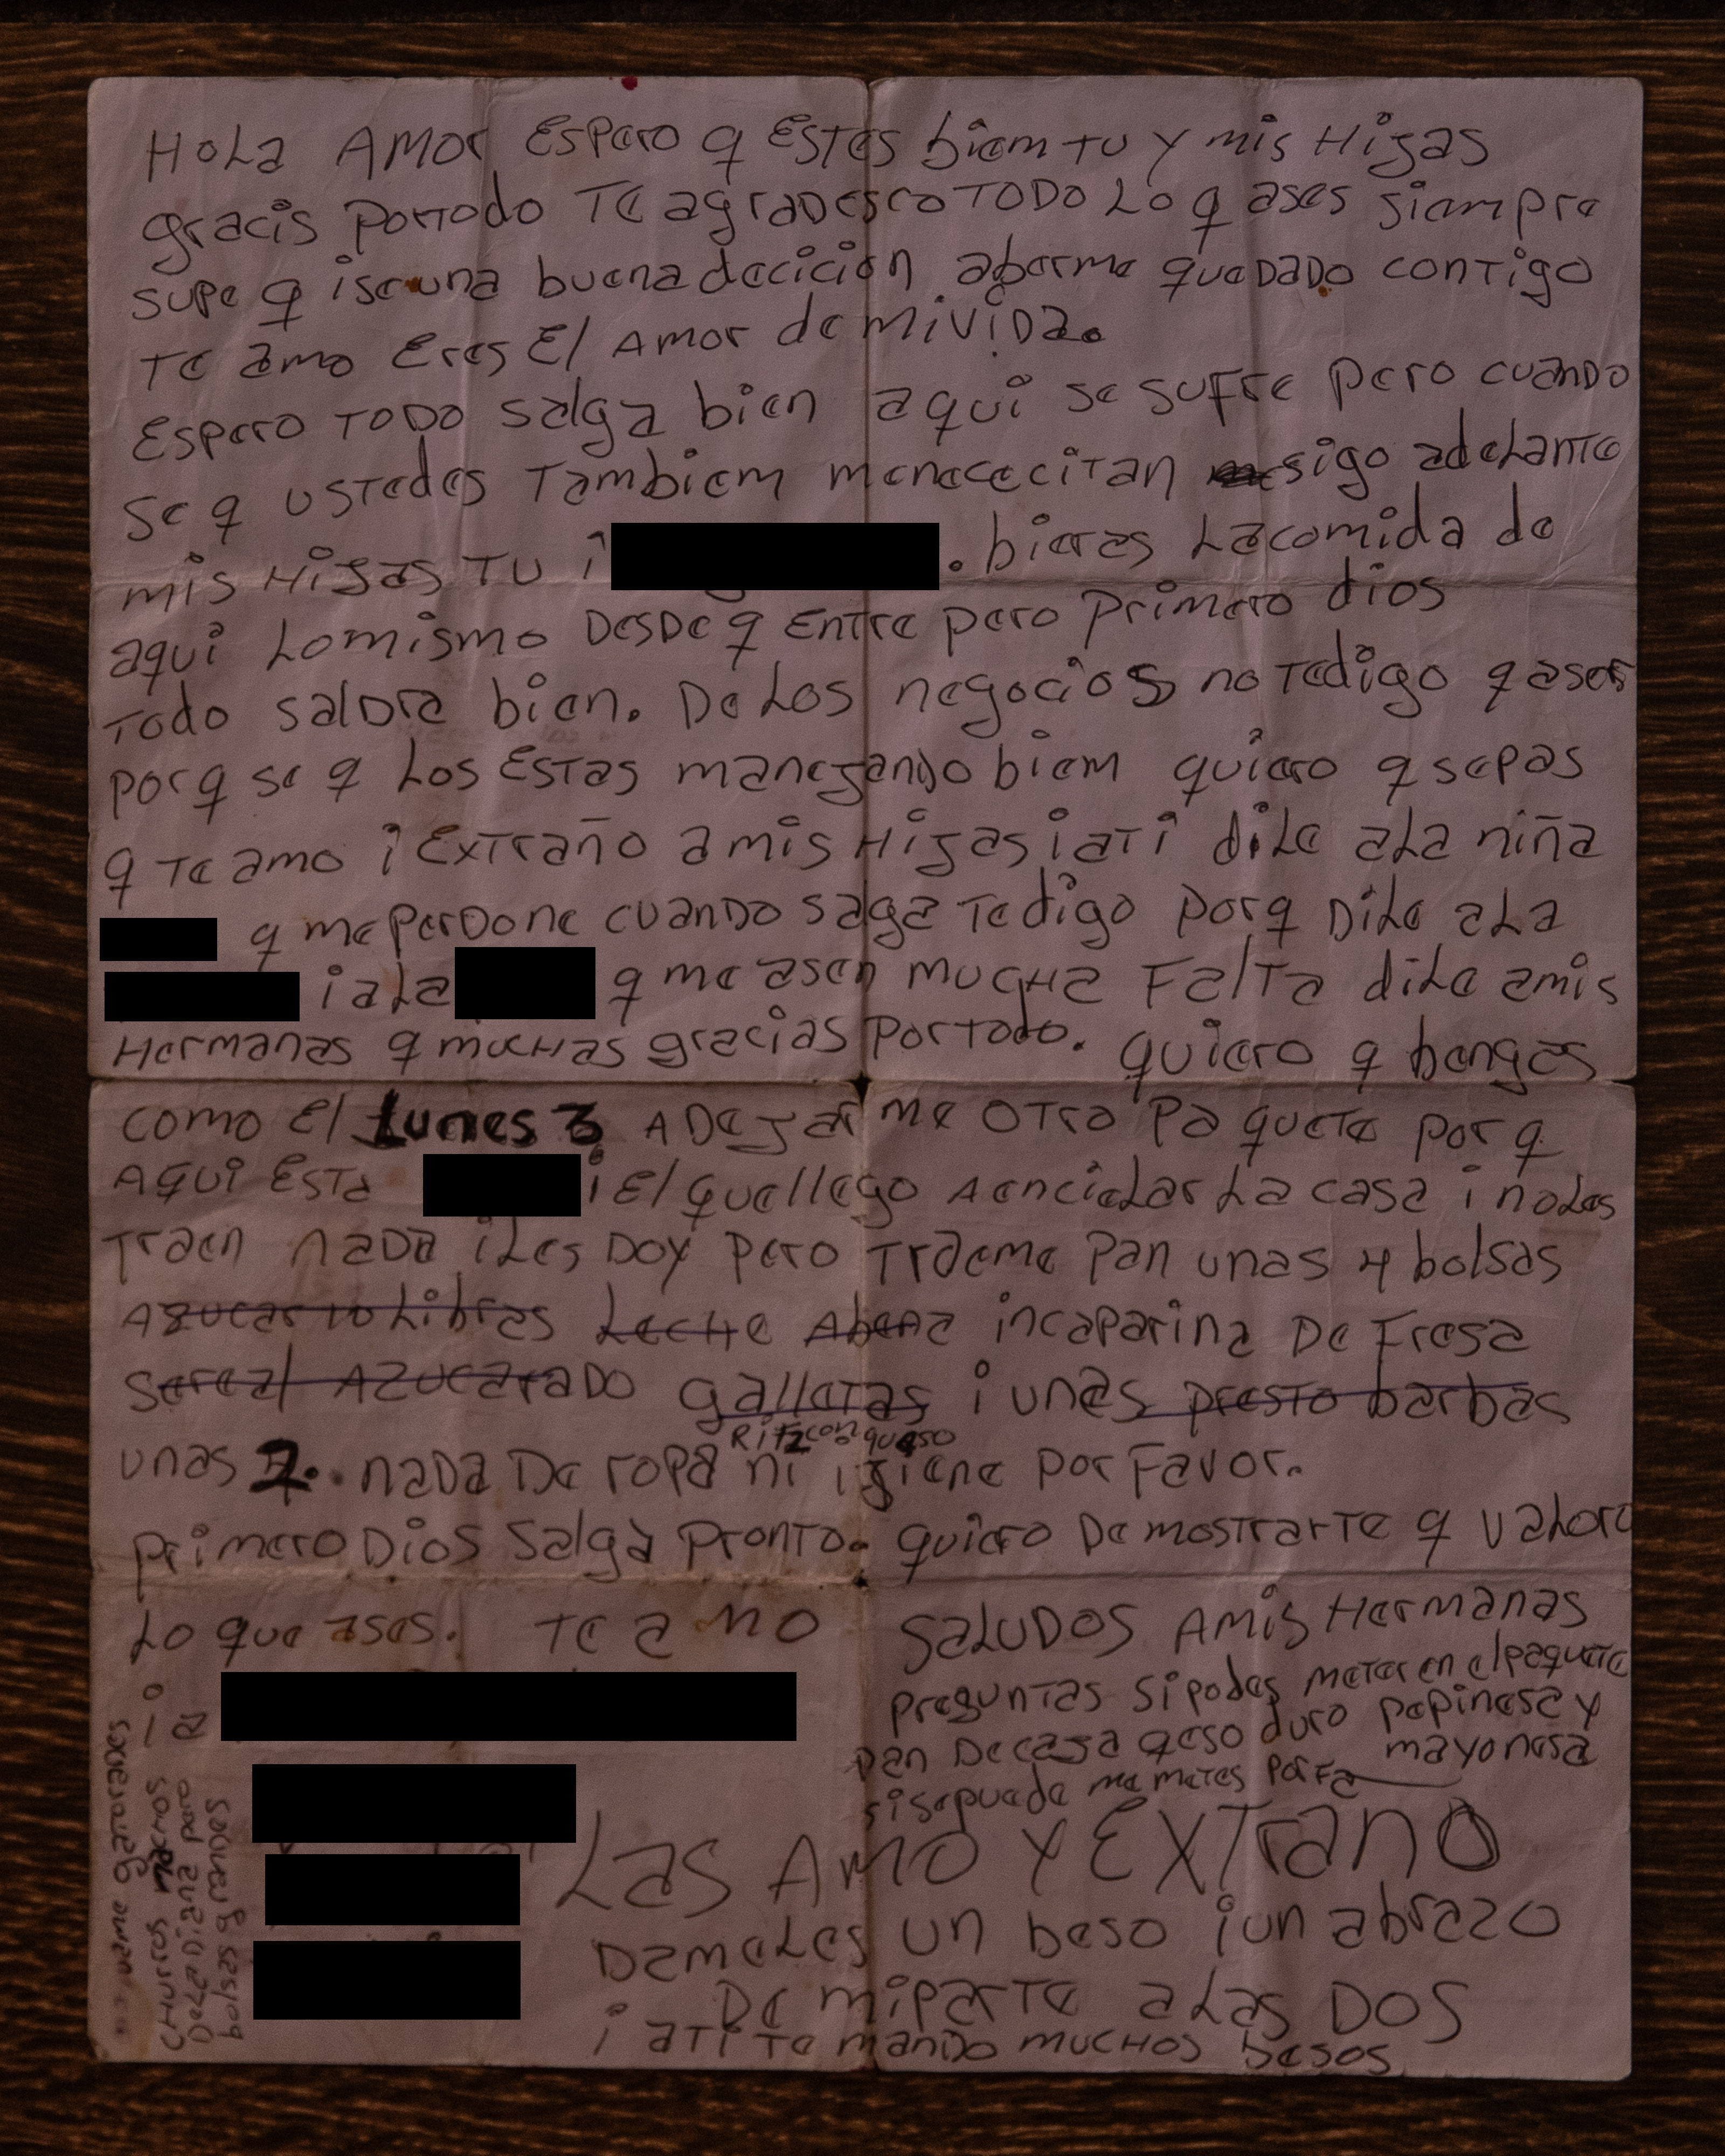 HoLa AMor Espero q Estes biem tu y mis Hijas
gracis portodo Te agradesco TODO Lo q ases siempre
supe q ise una buena decicion aberme quedado contigo
Te amo Eres El Amor de mi vida.
Espero TODO salga bien aqui se sufre pero cuando
se q ustedes Tambiem menececitan sigo adelante
mis Hijas TU i . bieras La comida de
aqui Lo mismo DesDe q Entre pero primero dios
Todo salDra bien. De Los negocios no Te digo q aser
porq se q Los Estas manejando biem quiero q sepas
q Te amo i Extraño a mis Hijas i aTi diLe aLa niña
q me perDone cuando saga Te digo porq DiLe aLa
i aLa q me asen mucha Falta diLe amis
Hermanas q muchas gracias por Todo. quiero q bengas
como El Lunes 3 A Dejarme OTro Paquete por q
Aqui Esta i El que llego A encieLar La casa i no Les
Traen naDa i Les Doy pero Traeme Pan unas 4 bolsas
Azucar 10 Libras Leche Abena incaparina De Fresa
Sereal Azucarado galletas i unas presto barbas
Ritz con queso
unas 2. naDa De ropa ni igiene por Favor.
primero Dios Salga pronto. quiero Demostrarte q vaLoro
Lo que ases. Te amo
SaLuDos Amis Hermanas
preguntas si podes meter en el paquete
pan De casa qeso duro pepinesa y
mayonesa
si se puede me metes porfa
Las Amo y Extraño
DameLes un beso i un abrazo
De mi parte a Las DOS
i a Ti Te mando muchos besos
gatorades
CHurros nachos
De La Diana pero
bolsas grandes